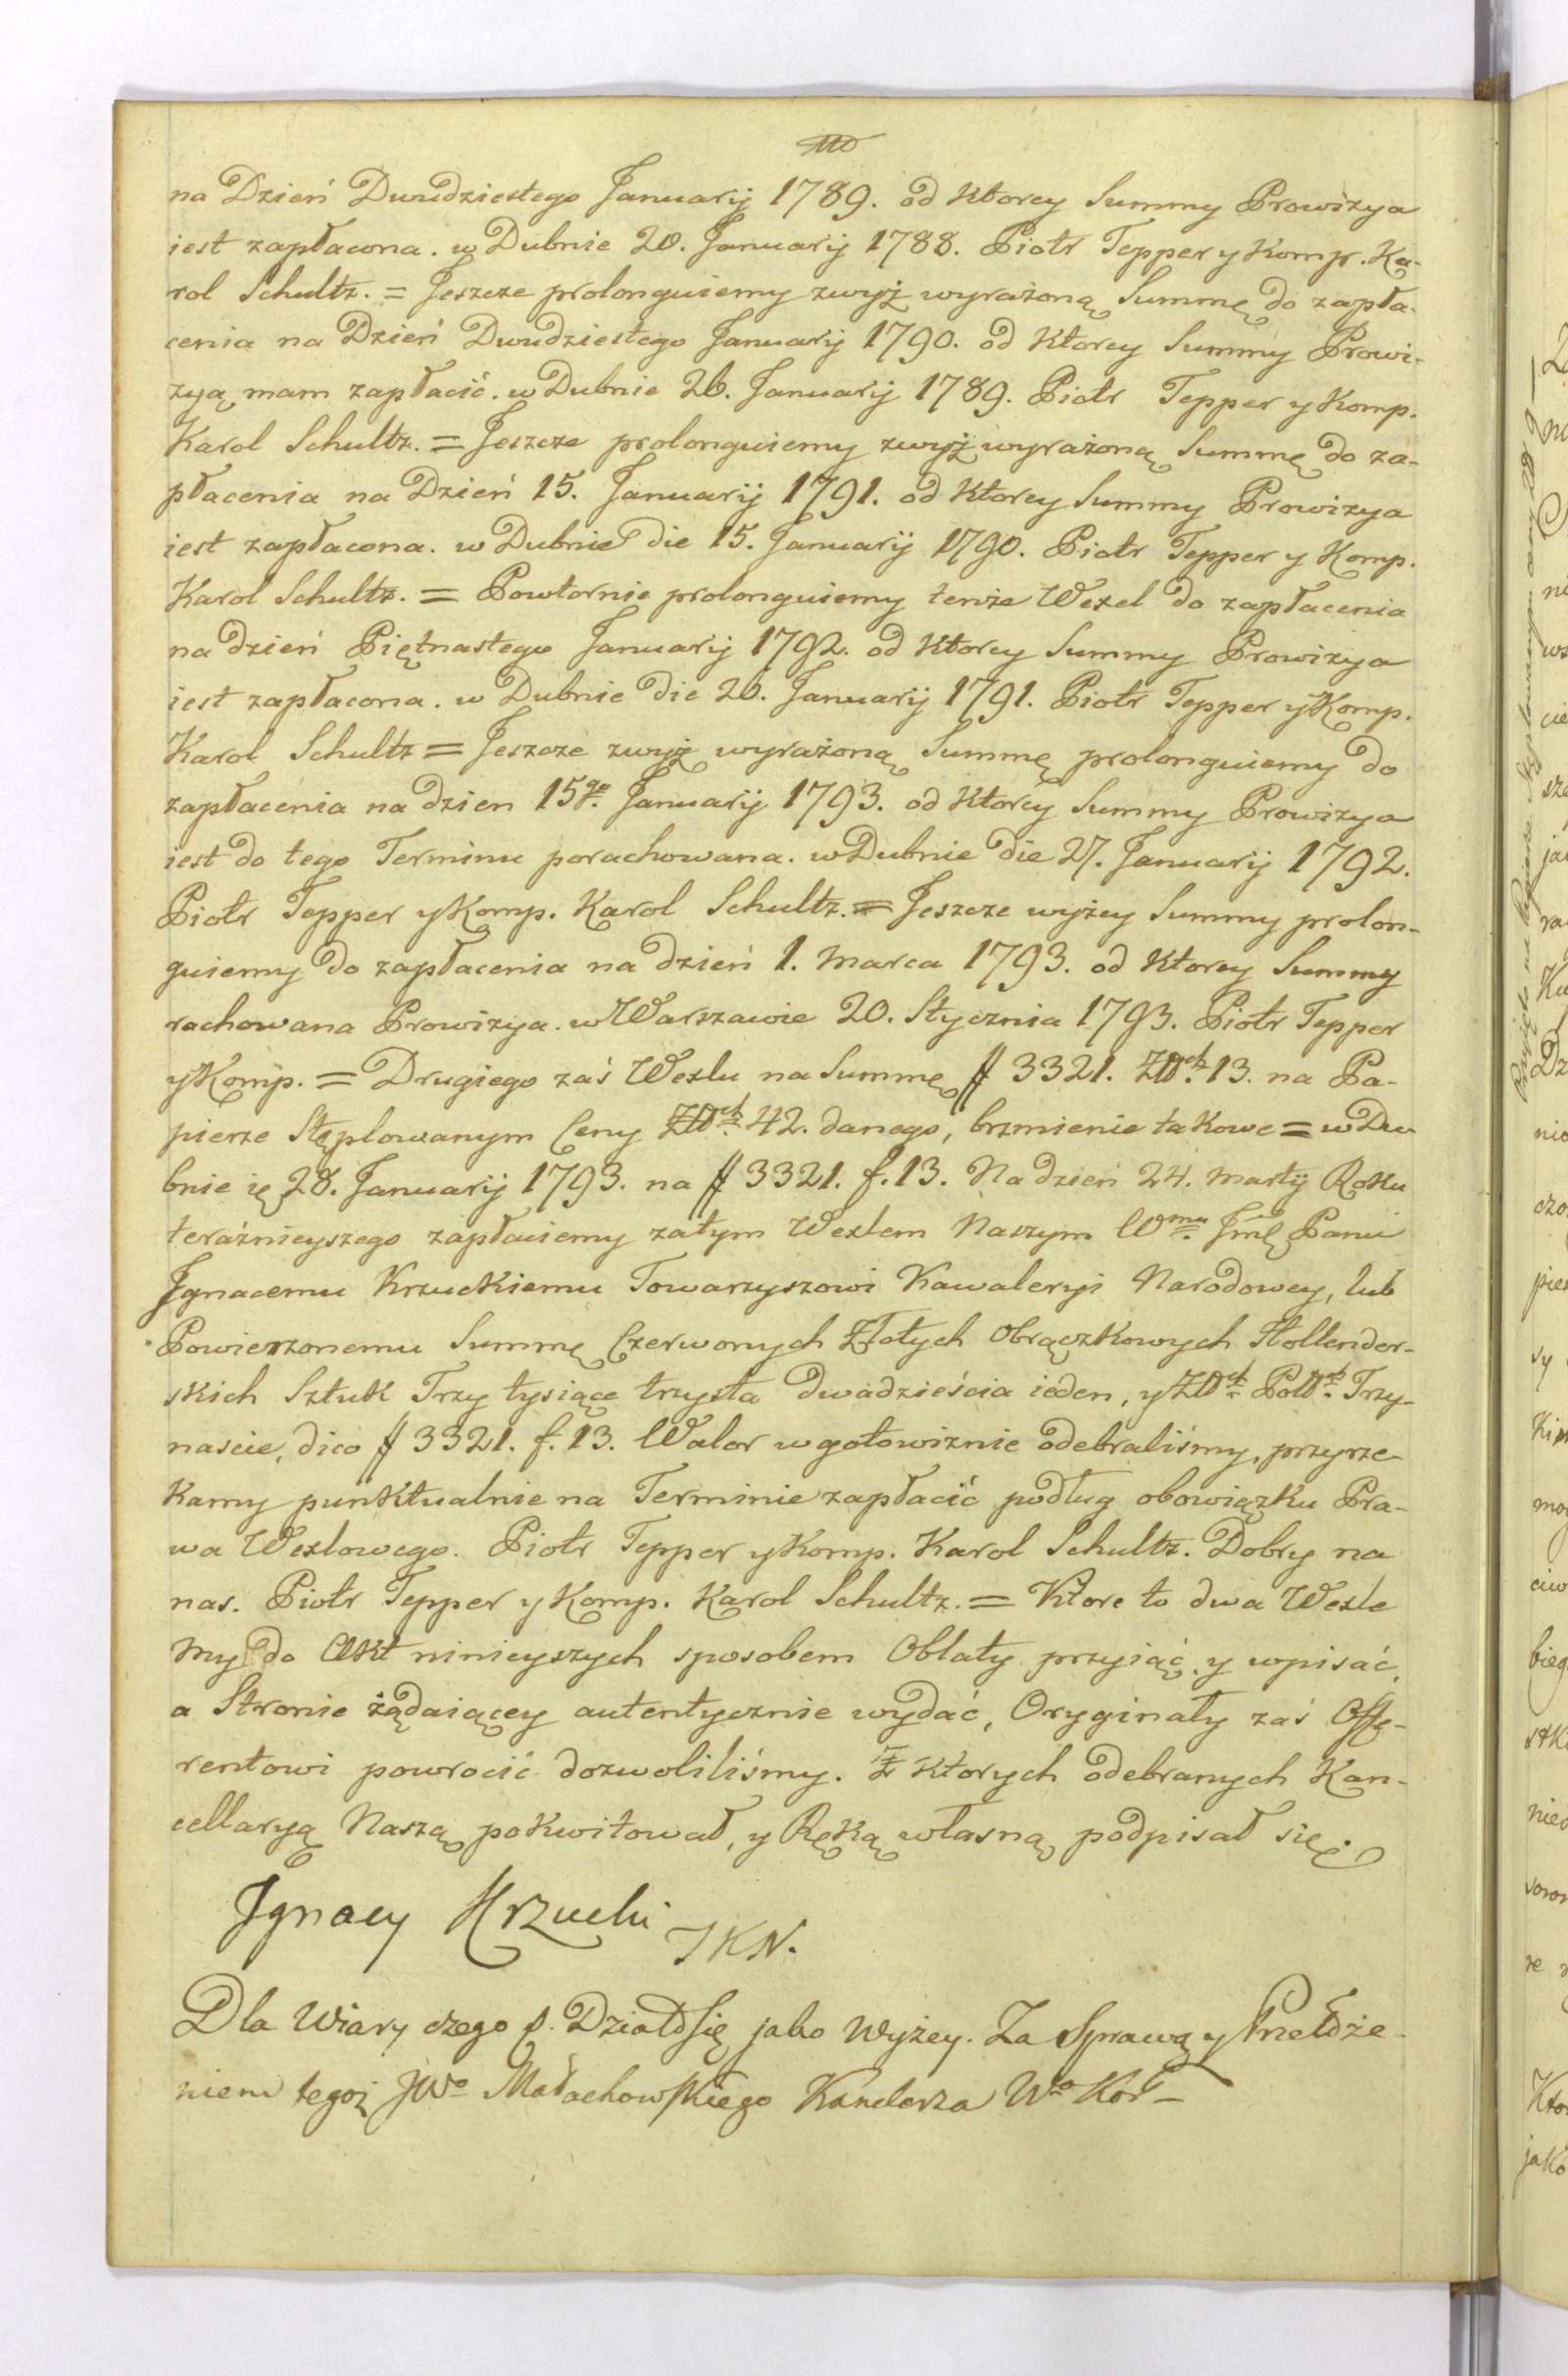 na Dzień Dwudziestego Januarij 1789. od Ktorey Summy Prowizya
iest zapłacona. w Dubnie 20. Januarij 1788. Piotr Tepper y Komp. Ka-
rol Schultz. = Jeszcze prolonguiemy zwyż wyrażoną Summę do zapła-
cenia na Dzień Dwudziestego Januarij 1790. od Ktorey Summy Prowi-
zyą mam zapłacić. w Dubnie 26. Januarij 1789. Piotr Tepper y Komp.
Karol Schultz. = Jeszcze prolonguiemy zwyż wyrażoną Summę do za-
płacenia na Dzień 15. Januarij 1791. od Ktorey Summy Prowizya
iest zapłacona. w Dubnie die 15. Januarij 1790. Piotr Tepper y Komp.
Karol Schultz. = Powtornie prolonguiemy tenże Wexel do zapłacenia
na dzień Piętnastego Januarij 1792. od Ktorey Summy Prowizya
iest zapłacona. w Dubnie die 26. Januarij 1791. Piotr Tepper y Komp.
Karol Schultz = Jeszcze zwyż wyrażoną Summę prolonguiemy do
zapłacenia na dzien 15go. Januarij 1793. od Ktorey Summy Prowizya
iest do tego Terminu porachowana. w Dubnie die 27. Januarij 1792.
Piotr Tepper y Komp. Karol Schultz. = Jeszcze wyżey Summy prolon-
guiemy do zapłacenia na dzień 1. Marca 1793. od Ktorey Summy
rachowana Prowizya. w Warszawie 20. Stycznia 1793. Piotr Tepper
y Komp. = Drugiego zaś Wexlu na Summę # 3321. Złłch. 13. na Pa-
pierze Stęplowanym Ceny Złłch. 42. danego, brzmienie takowe = w Du-
bnie 28. Januarij 1793. na # 3321. f. 13. Na dzień 24. Martij Roku
teraźnieyszego zapłaciemy zatym Wexlem Naszym Wmu. Jmć Panu
Jgnacemu Krzuckiemu Towarzyszowi Kawaleryi Narodowey, lub
Powierzonemu Summę Czerwonych Złotych Obrączkowych Hollender-
skich Sztuk Trzy tysiące trzysta dwadzieścia ieden, y Złłch. Polłch. Trzy-
nascie, dico # 3321. f. 13. Walor w gotowiznie odebraliśmy, przyrze-
kamy punktualnie na Terminie zapłacić podług obowiązku Pra-
wa Wexlowego. Piotr Tepper y Komp. Karol Schultz. Dobry na
nas. Piotr Tepper y Komp. Karol Schultz. = Ktore to dwa Wexle
My do Akt ninieyszych sposobem Oblaty przyiąć, y wpisać,
a Stronie żądaiącey autentycznie wydać, Oryginały zaś Offe-
rentowi powrocić dozwoliliśmy. Z Ktorych odebranych Kan-
cellaryą Naszą pokwitował, y Ręką własną podpisał się.
Jgnacy Krzucki TKN.
Dla Wiary czego p. Działo Się jako Wyżey. Za Sprawą y Przełoże-
niem tegoż JWo Małachowskiego Kanclerza Wo Kor-